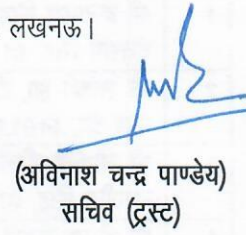 लखनऊ।
(अविनाश चन्द्र पाण्डेय)
सचिव (ट्रस्ट)